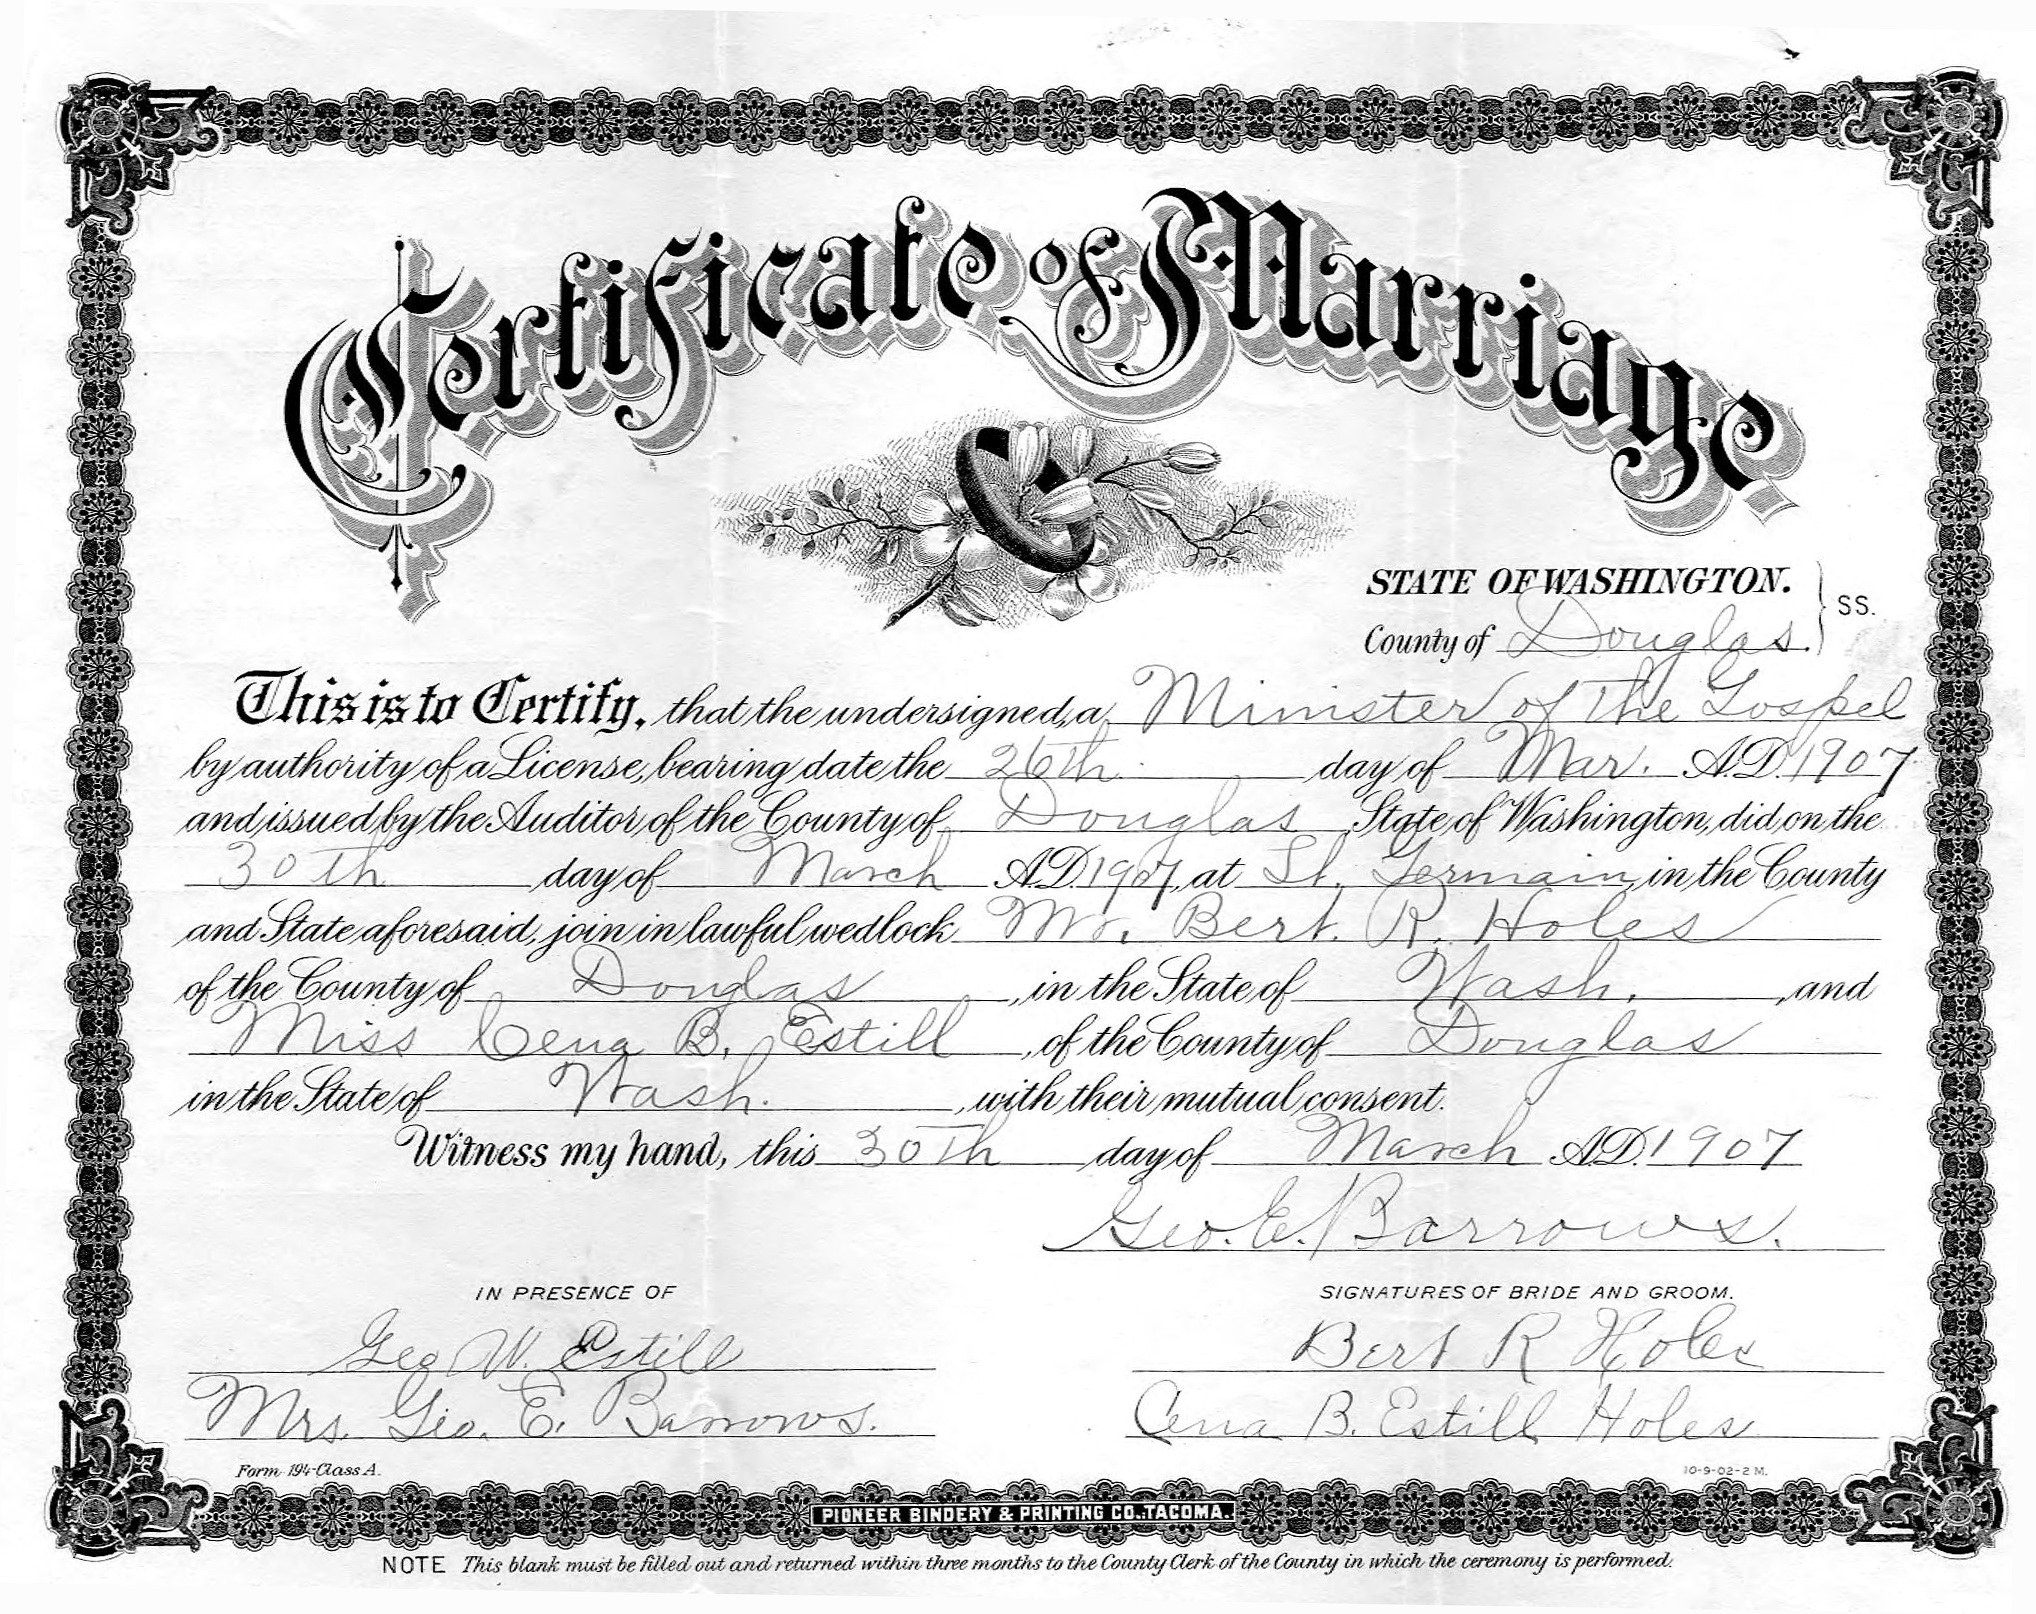 Certificate of Marriage
STATE OF WASHINGTON. } SS.
County of Douglas.
This is to Certify, that the undersigned, a Minister of The Gospel
by authority of a License, bearing date the 26th day of Mar. A.D. 1907
and issued by the Auditor of the County of Douglas State of Washington, did on the
30th day of March A.D. 1907, at St. Germain in the County
and State aforesaid, join in lawful wedlock Mr. Bert. R. Holes
of the County of Douglas, in the State of Wash., and
Miss Cena B. Estill, of the County of Douglas
in the State of Wash., with their mutual consent.
Witness my hand, this 30Th day of March A.D. 1907
Geo. E. Barrows.
IN PRESENCE OF
SIGNATURES OF BRIDE AND GROOM.
Geo W. Estill
Bert R Holes
Mrs. Geo. E. Barrows.
Cena B. Estill Holes
Form 194-Class A.
10-9-02-2 M.
PIONEER BINDERY & PRINTING CO., TACOMA.
NOTE This blank must be filled out and returned within three months to the County Clerk of the County in which the ceremony is performed.